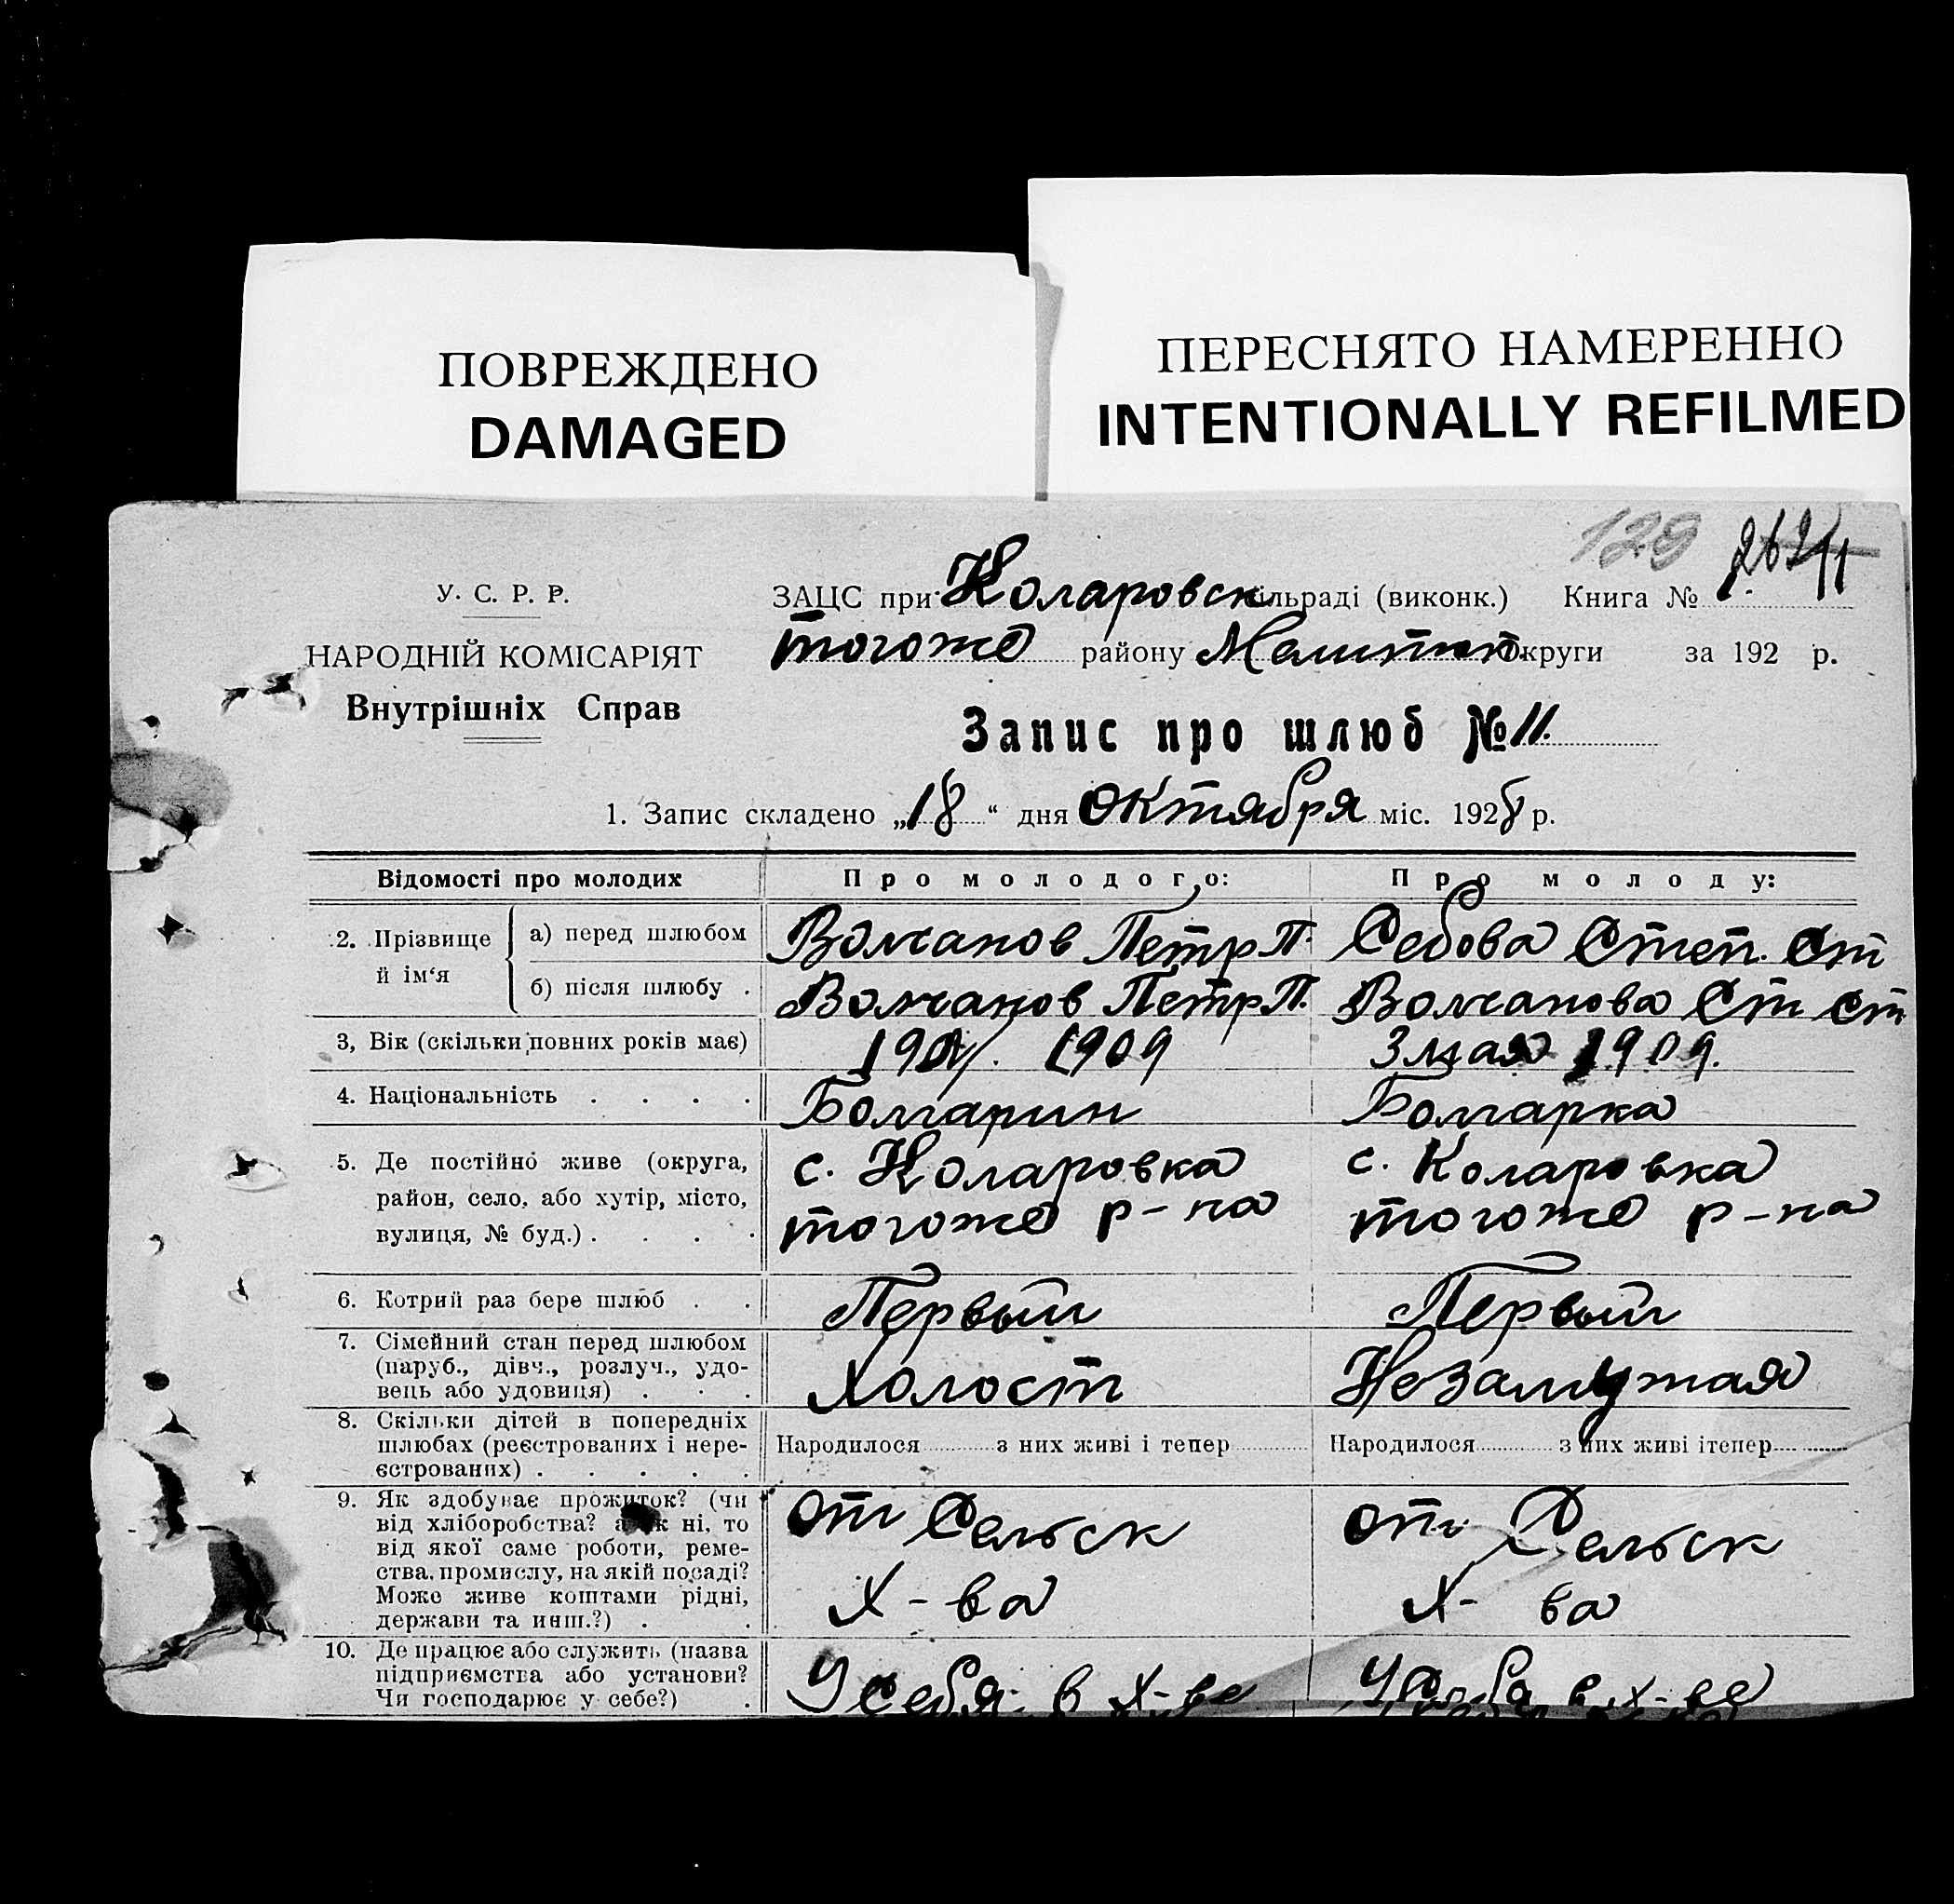 ПОВРЕЖДЕНО
DAMAGED
ПЕРЕСНЯТО НАМЕРЕННО
INTENTIONALLY REFILMED
129
У. С. Р. Р.
НАРОДНІЙ КОМІСАРІЯТ
Внутрішніх Справ
ЗАЦС при Коларовск сільраді (виконк.) Книга №
тогоже району округи за 192 р.
Запис про шлюб № 11.
1. Запис складено „18“ дня Октября міс. 1928 р.
Відомості про молодих Про молодого: Про молоду:
2. Прізвище й ім‘я
а) перед шлюбом Волчанов Петр П. Седова Степ. Ст
б) після шлюбу . Волчанов Петр П. Волчанова Ст Ст
3, Вік (скільки повних років має) 1909 3 мая 1909.
4. Національність . . . . Болгарин Болгарка
5. Де постійно живе (округа, с. Коларовка с. Коларовка
район, село, або хутір, місто, тогоже р-на тогоже р-на
вулиця, № буд.) . . . .
6. Котрий раз бере шлюб . . Первый Первый
7. Сімейний стан перед шлюбом
(паруб., дівч., розлуч., удо- Холост Незамужая
вець або удовиця) . . .
8. Скільки дітей в попередніх
шлюбах (реєстрованих і нере- Народилося з них живі і тепер Народилося з них живі ітепер
єстрованих) . . . . .
9. Як здобуває прожиток? (чи
від хліборобства? а як ні, то от Сельск от Сельск
від якої саме роботи, реме-
ства, промислу, на якій посаді?
Може живе коштами рідні, Х-ва Х-ва
держави та инш.?) . .
10. Де працює або служить (назва
підприємства або установи? У себя в Х-ве У себя в Х-ве
Чи господарює у себе?) .